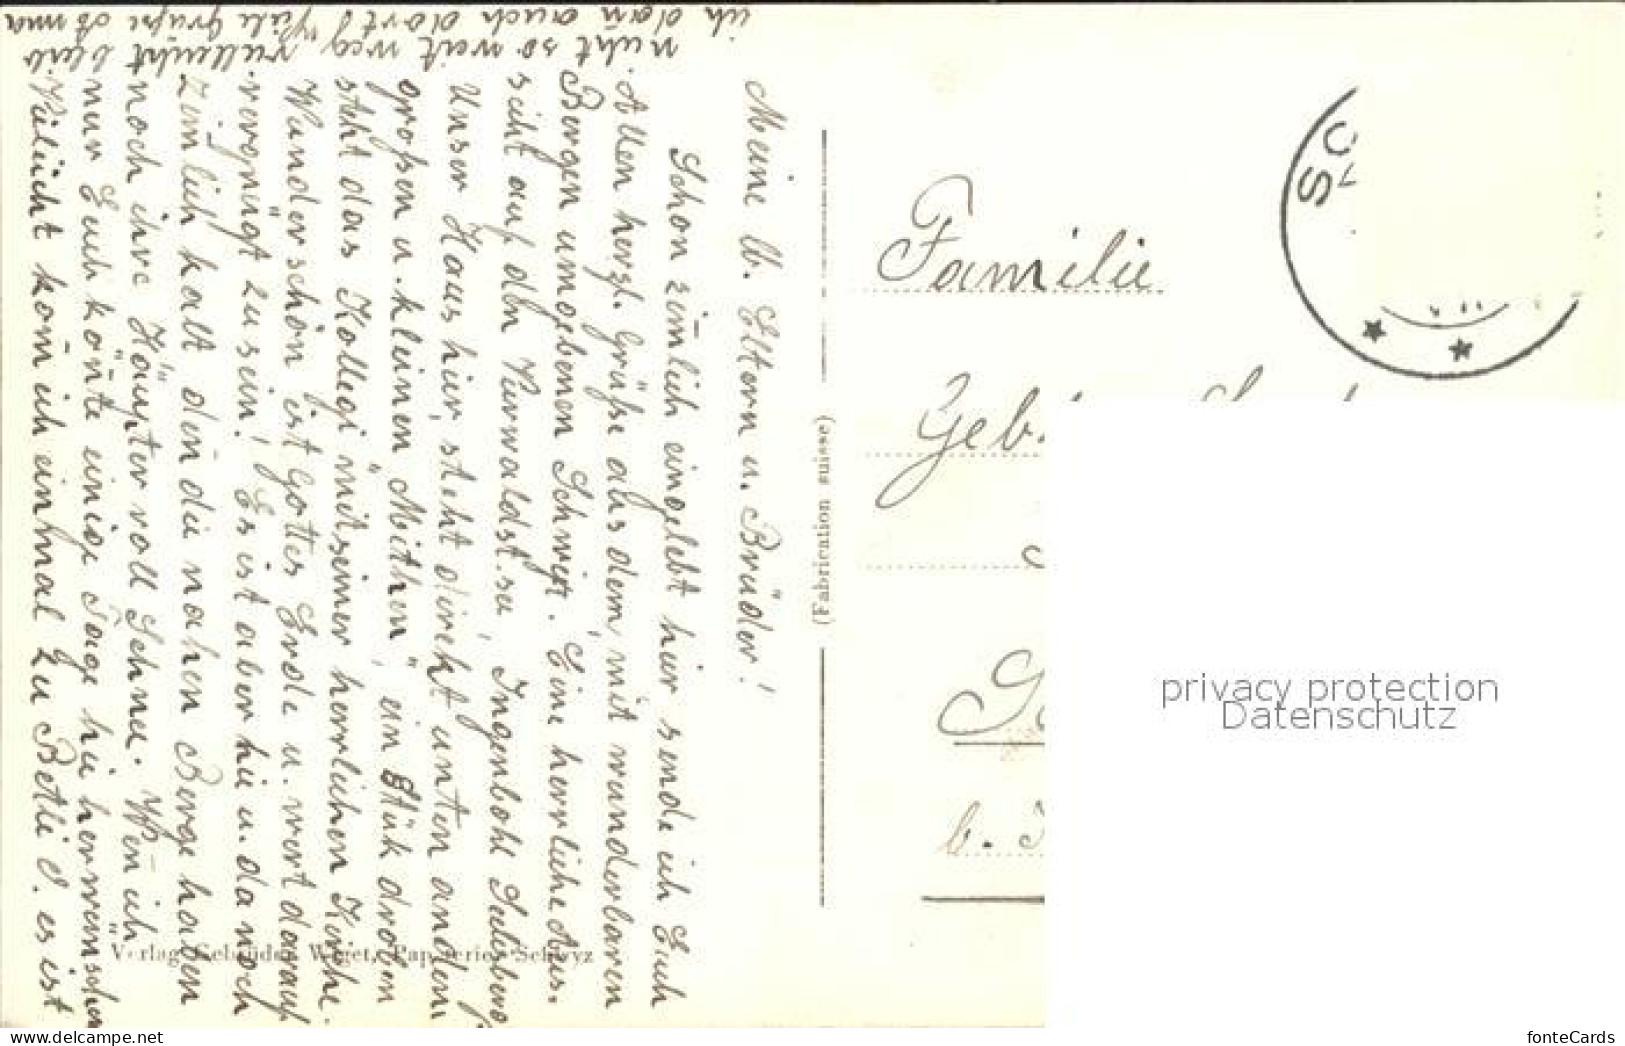 Meine lb. Eltern u. Brüder!
Schon zim̄lich eingelebt hier sende ich Euch
Allen herzl. Grüße aus dem, mit wunderbaren
Bergen umgebenen Schwyz. Eine herrliche Aus-
sicht auf den Vierwaldst.see, Ingenbohl Seelisberg
Unser Haus hier, steht direkt unten an den
großen u. kleinen "Mithen", ein Stük droben
steht das "Kollegi" mit seiner herrlichen Kirche.
Wunderschön ist Gottes Erde u. wert darauf
vergnügt zu sein! Es ist aber hie u. da noch
zim̄lich kalt den̄ die nahen Berge haben
noch ihre Häupter voll Schnee. Wen̄ ich
nur Euch kön̄te einige Tage hie herwünschen
Vieleicht kom̄ ich einmal zu Betli S. es ist
nicht so weit weg vielleicht bleib
ich dan̄ auch dort! Viele Grüße
(Fabrication suisse)
Verlag Gebrüder Wiget, Papeterie, Schwyz
Familie
Geb.
b.
SC
privacy protection
Datenschutz
www.ansichtskarten-center.de
fonteCards